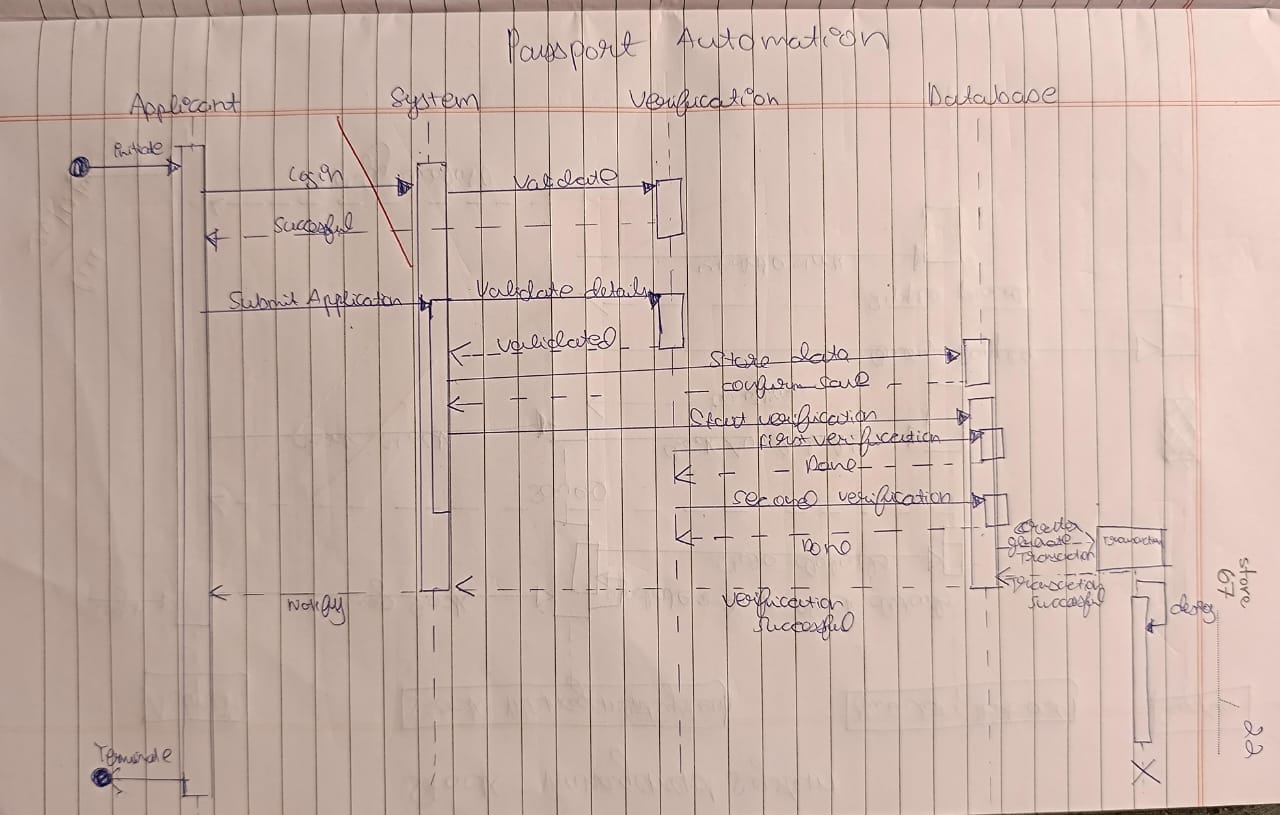 Passport Automation
Applicant
System
Verification
Database
initiate
Login
Validate
Succesful
Submit Application
Validate details
validated
Store data
confirm save
Start verification
first verification
Done
second verification
Done
generate
Transaction
Transaction
Transaction
Successful
Verification
Successful
Notify
destroy
Terminate
67
22